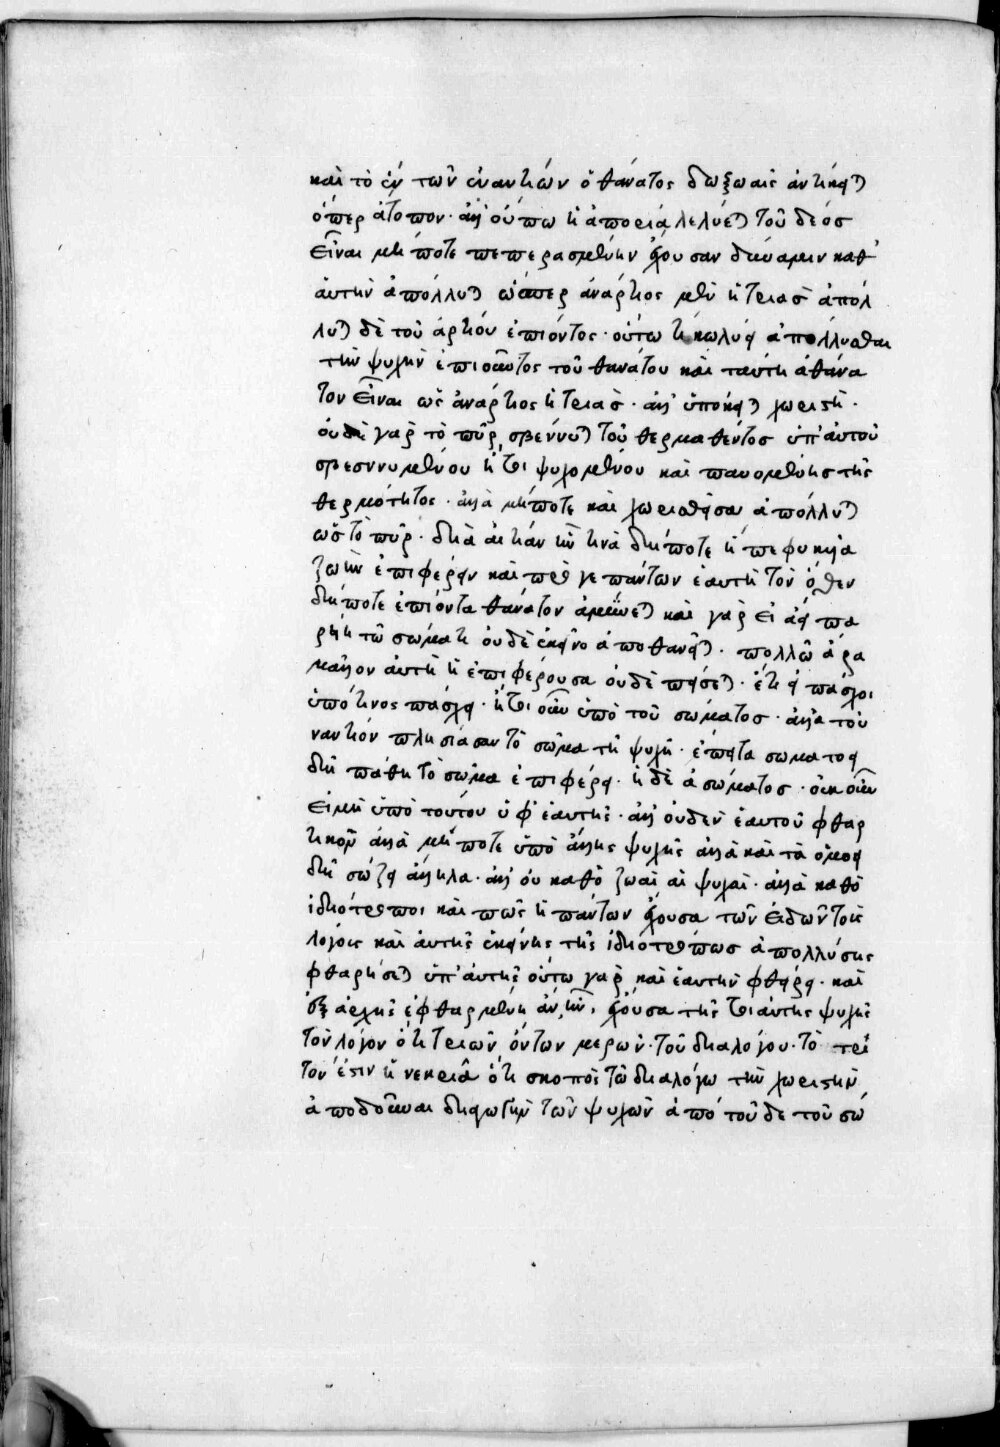 καὶ τὸ ἐν τῶν ἐναντίων ὁ θάνατος δόξῃ ἀντικεῖται
ὅπερ ἄτοπον· ἀλλ' οὔπω ἡ ἀπορία λέλυται τοῦ δέος
εἶναι μήποτε πεπερασμένην ἔχουσαν δύναμιν καθ'
αὑτὴν ἀπόλλυται ὥσπερ ἀνάρτιος μὲν ἡ τριὰς ἀπόλ
λυται δὲ τοῦ ἀρτίου ἐπιόντος· οὕτω τί κωλύει ἀπόλλυσθαι
τὴν ψυχὴν ἐπιόντος τοῦ θανάτου καὶ ταύτῃ ἀθάνα
τον εἶναι ὡς ἀνάρτιος ἡ τριάς· ἀλλ' ὑπόκειται χωριστή·
οὐδὲ γὰρ τὸ πῦρ σβέννυται τοῦ θερμαθέντος ὑπ' αὐτοῦ
σβεννυμένου ἤτοι ψυχομένου καὶ παυομένης τῆς
θερμότητος· ἀλλὰ μήποτε καὶ χωρισθεῖσα ἀπόλλυται
ὡς τὸ πῦρ· διὰ αἰτίαν ἥν τινα δήποτε ἡ πεφυκυῖα
ζωὴν ἐπιφέρειν καὶ πρό γε πάντων ἑαυτῇ τὸν ὅθεν
δήποτε ἐπιόντα θάνατον ἀμύνεται καὶ γὰρ εἰ ἀεὶ πα
ρείη τῷ σώματι οὐδὲ ἐκεῖνο ἀποθανεῖται· πολλῷ ἄρα
μᾶλλον αὐτὴ ἡ ἐπιφέρουσα οὐδὲ πείσεται· ἔτι εἰ πάσχοι
ὑπό τινος πάσχει· ἤτοι οὖν ὑπὸ τοῦ σώματος· ἀλλὰ τοὐ
ναντίον πλησιάσαν τὸ σῶμα τῇ ψυχῇ· ἔπειτα σωματοει
δῆ πάθη τὸ σῶμα ἐπιφέρει· ἡ δὲ ἀσώματος· οὐκ οὖν
εἰ μὴ ὑπὸ τούτου ὑφ' ἑαυτῆς· ἀλλ' οὐδὲν ἑαυτοῦ φθαρ
τικόν ἀλλὰ μήποτε ὑπὸ ἄλλης ψυχῆς ἀλλὰ καὶ τὰ ὁμοει
δῆ σώζει ἄλληλα· ἀλλ' οὐ καθὸ ζωαὶ αἱ ψυχαί· ἀλλὰ καθὸ
ἰδιότροποι καὶ πῶς ἡ πάντων ἔχουσα τῶν εἰδῶν τοὺς
λόγους καὶ αὐτῆς ἐκείνης τῆς ἰδιοτρόπως ἀπολλύσης
φθαρήσεται ὑπ' αὐτῆς οὕτω γὰρ καὶ ἑαυτὴν φθείρει· καὶ
ἐξ ἀρχῆς ἐφθαρμένη ἂν ἦν, ἔχουσα τῆς τοιαύτης ψυχῆς
τὸν λόγον ὅτι τριῶν ὄντων μερῶν· τοῦ διαλόγου· τὸ τρί
τον ἐστιν ἡ νεκυία ὅτι σκοπὸς τῷ διαλόγῳ τὴν χωριστὴν
ἀποδοῦναι διαγωγὴν τῶν ψυχῶν ἀπὸ τοῦδε τοῦ σώ